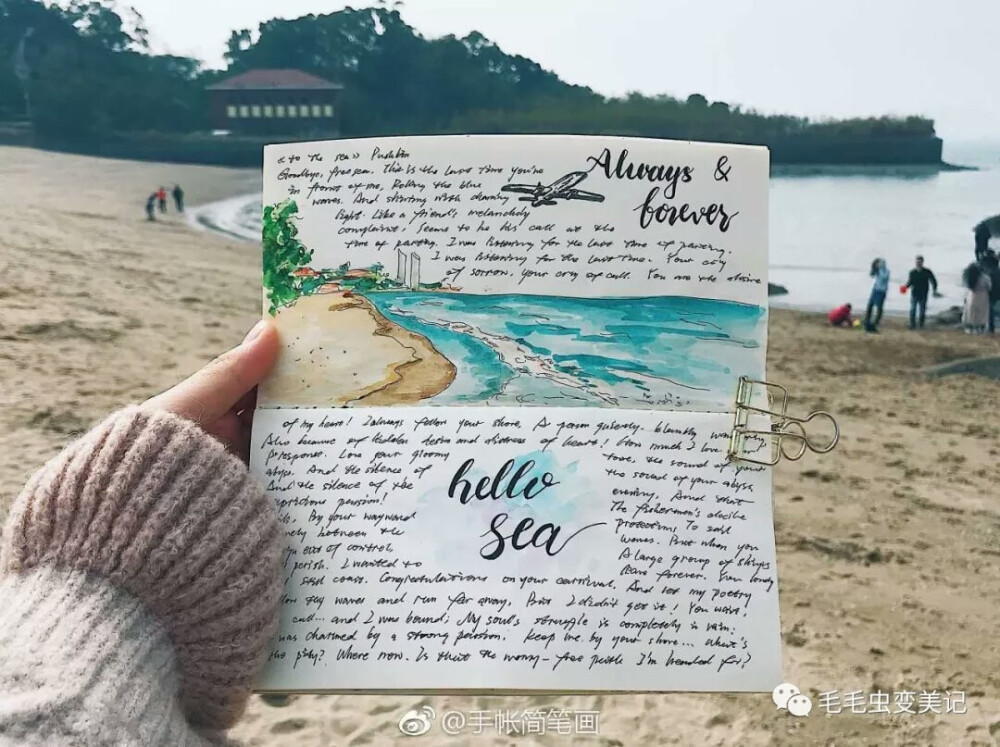 << to the sea >> Pushkin
Goodbye, free sea. This is the last time you're
in front of me, Rolling the blue
waves. And shining with charming
light. Like a friend's melancholy
complaint, Seems to be his call at the
time of parting. I was listening for the last time of parting.
I was listening for the last time. Your cry
of sorrow. your cry of call. You are the desire
Always &
forever
of my heart! I always follow your shore, A person quietly
Also because of hidden desire and distress of heart! How much I love
prosponse. Love your gloomy
abyss. And the silence of
And the silence of the
capricious passion!
By your wayward
between the
out of control,
perish. I wanted to
hello
sea
tone, the sound of your
the sound of your abyss
evening, And that
The fishermen's docile
protection, To sail
waves. But when you
A large group of ships
leave forever. Your lonely
coast. Congratulations on your carnival. And let my poetry
waves and run far away, But I didn't get it! You wait!
call... and I was bound; My soul's struggle is completely in vain:
was charmed by a strong passion. Keep me by your shore... What's
the pity? Where now. Is that the worry-free path I'm headed for?
@手帐简笔画
毛毛虫变美记